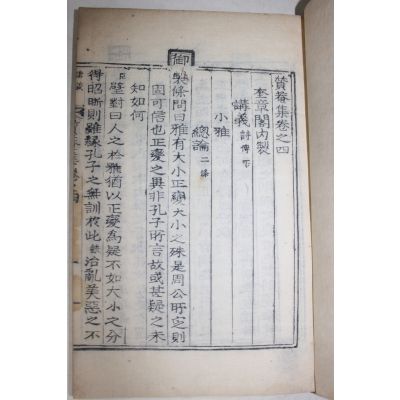 質菴集卷之四
奎章閣內製
講義 詩傳 下
小雅
總論 二條
御
製條問曰雅有大小正變大小之殊是周公所定則
固可信也正變之異非孔子所言故或甚疑之未
知如何
臣
璧對曰人之於雅猶以正變爲疑不如大小之分
得昭晣則雖緣孔子之無訓於此
治亂美惡之不